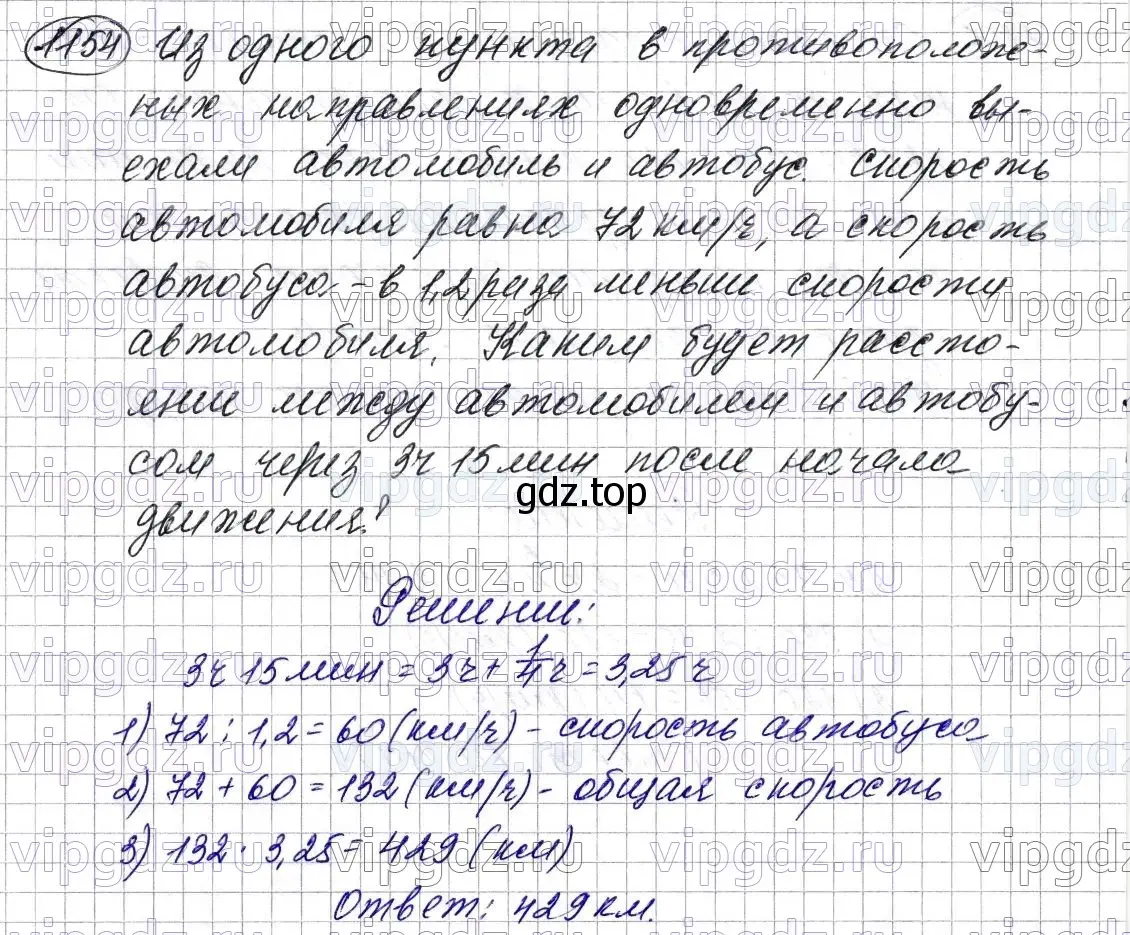 1154 Из одного пункта в противополож-
ных направлениях одновременно вы-
ехали автомобиль и автобус. Скорость
автомобиля равна 72 км/ч, а скорость
автобуса - в 1,2 раза меньше скорости
автомобиля. Каким будет рассто-
яние между автомобилем и автобу-
сом через 3ч 15 мин после начала
gdz.top
движения?
Решение:
3ч 15 мин = 3ч + 1/4 ч = 3,25 ч
1) 72 : 1,2 = 60 (км/ч) - скорость автобуса
2) 72 + 60 = 132 (км/ч) - общая скорость
3) 132 · 3,25 = 429 (км)
Ответ: 429 км.
vipgdz.ru